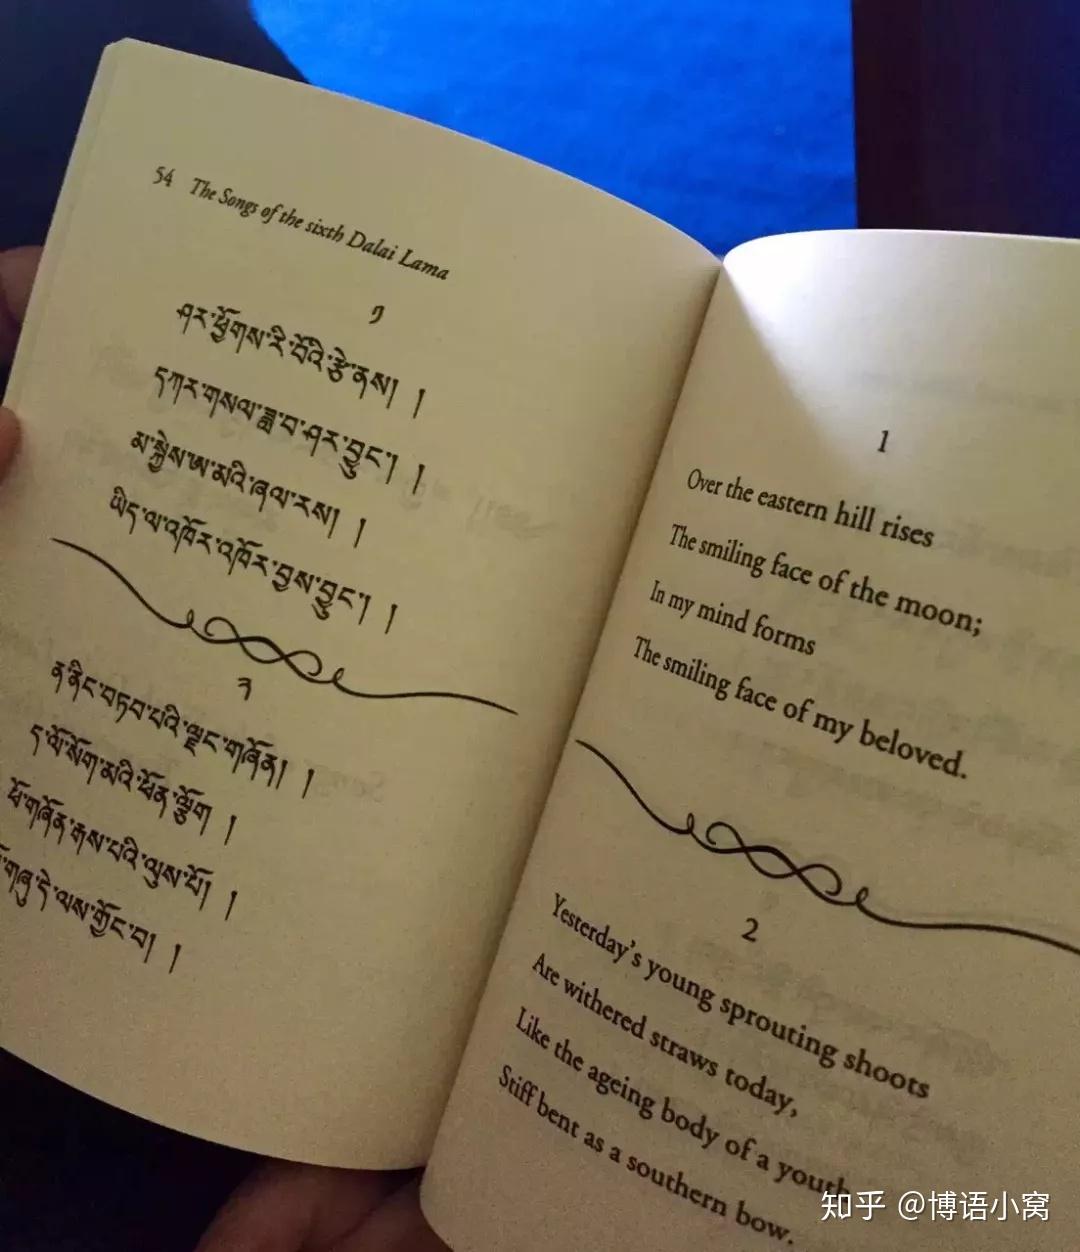 54 The Songs of the sixth Dalai Lama
༡
ཤར་ཕྱོགས་རི་བོའི་རྩེ་ནས། །
དཀར་གསལ་ཟླ་བ་ཤར་བྱུང་། །
མ་སྐྱེས་ཨ་མའི་ཞལ་རས། །
ཡིད་ལ་འཁོར་འཁོར་བྱས་བྱུང་། །
༢
ན་ནིང་བཏབ་པའི་ལྗང་གཞོན། །
ད་ལོ་སོག་མའི་ཕོན་ལྕོག །
ཕོ་གཞོན་རྒས་པའི་ལུས་པོ། །
གཞུ་དེ་ལས་གྱོང་བ། །
1
Over the eastern hill rises
The smiling face of the moon;
In my mind forms
The smiling face of my beloved.
2
Yesterday's young sprouting shoots
Are withered straws today,
Like the ageing body of a youth
Stiff bent as a southern bow.
知乎 @博语小窝